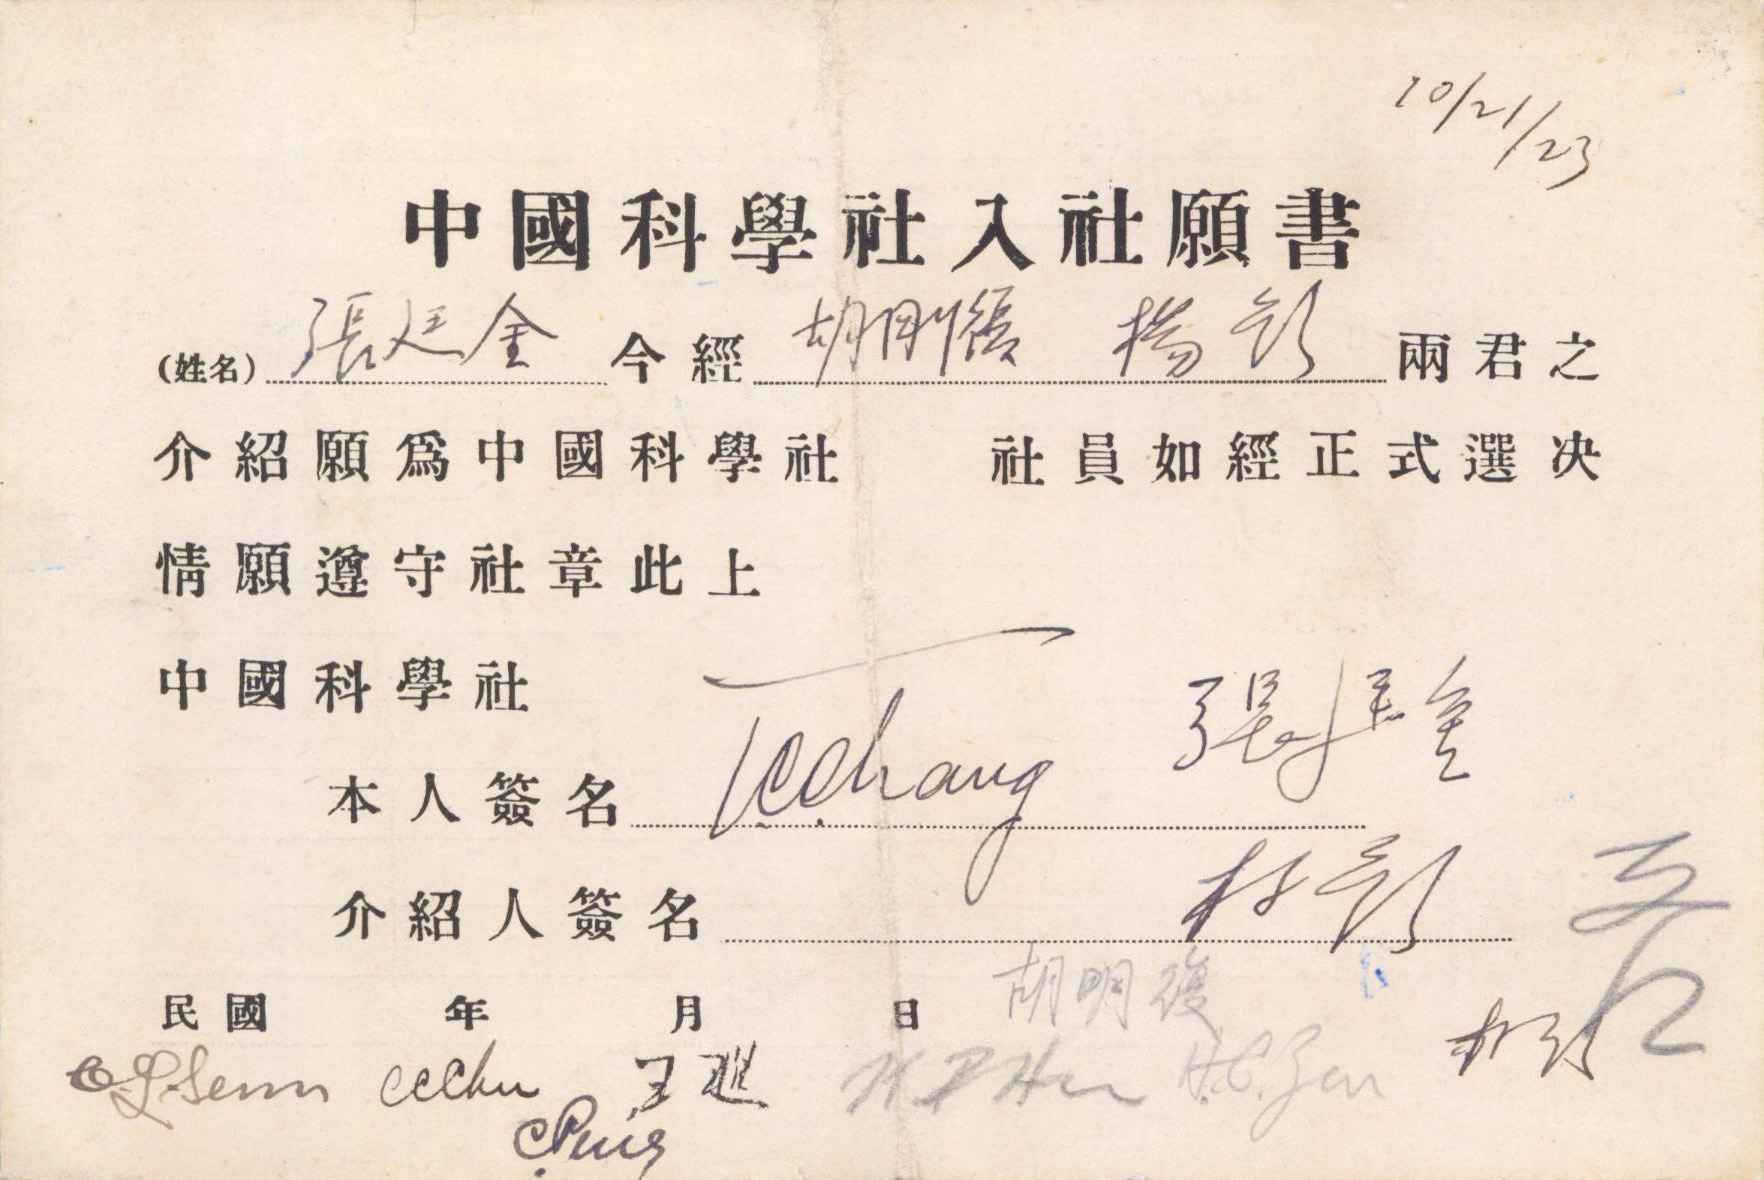 10/21/23
中國科學社入社願書
(姓名) 張廷金 今經 胡剛復 楊銓 兩君之
介紹願爲中國科學社 社員如經正式選决
情願遵守社章此上
中國科學社
本人簽名 T.C.Chang 張廷金
介紹人簽名
胡明復
民國 年 月 日
C.Ping